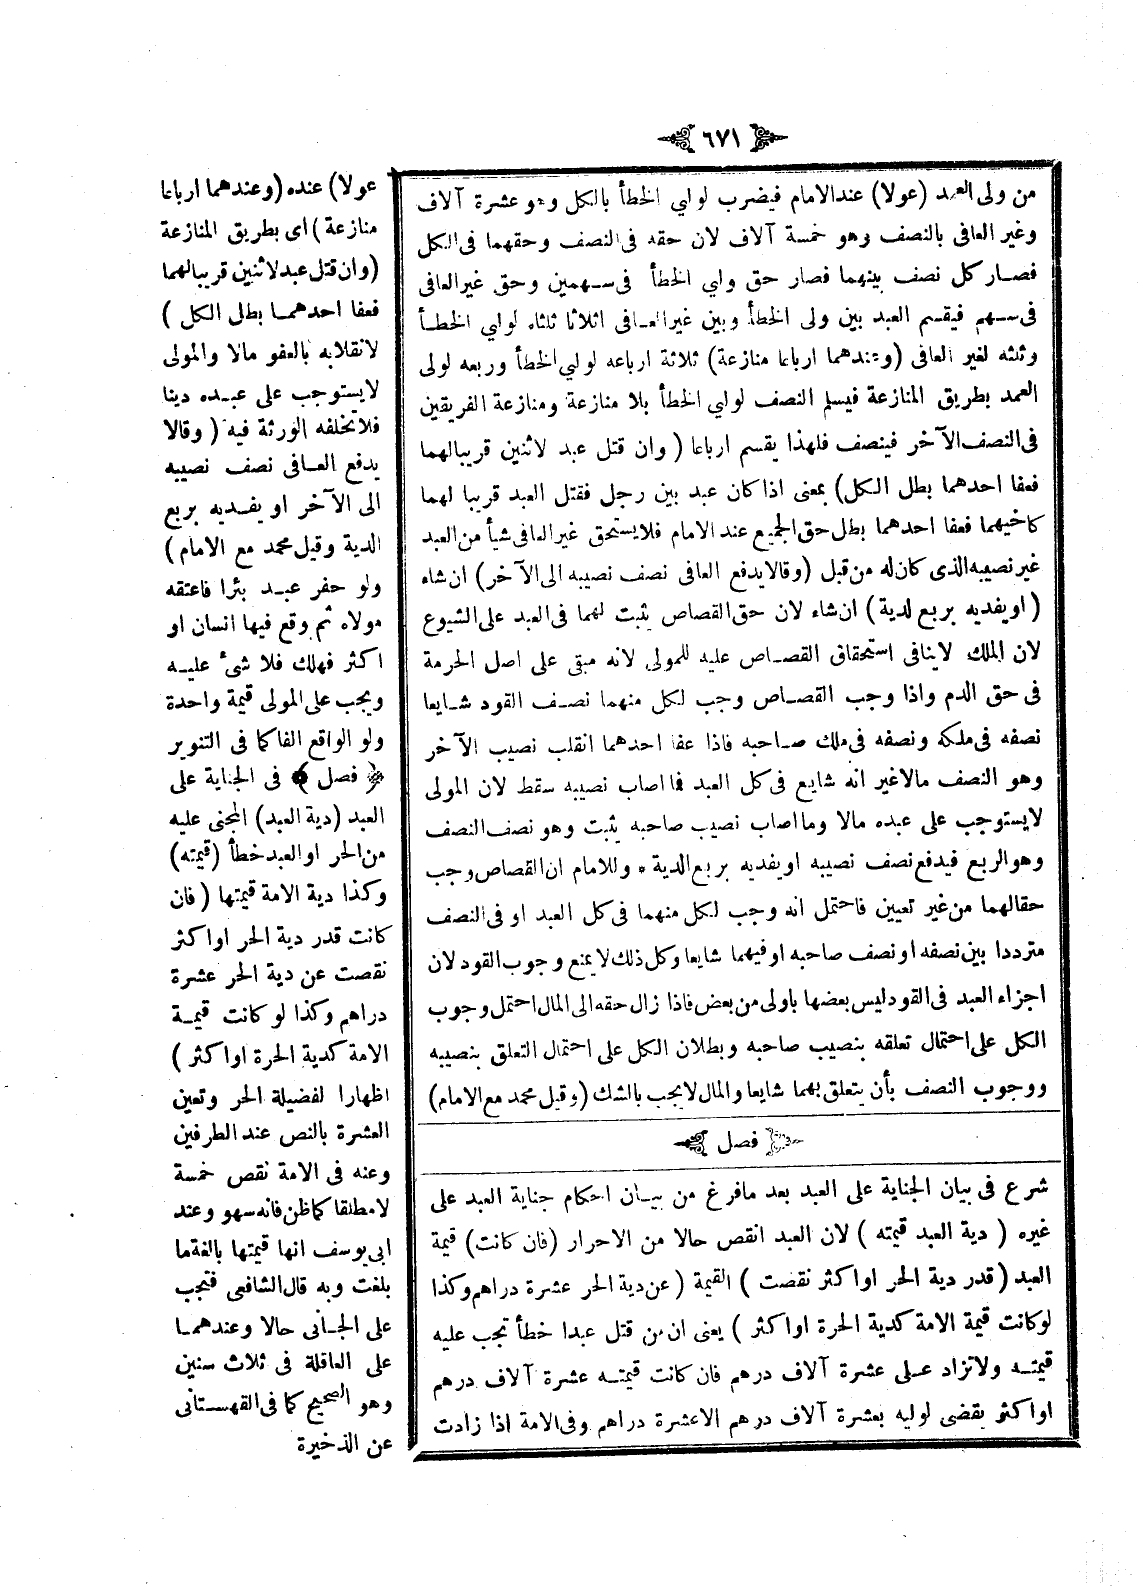 ٦٧١
من ولى العمد (عولا) عند الامام فيضرب لوليي الخطأ بالكل وهو عشرة آلاف
وغير العافى بالنصف وهو خمسة آلاف لان حقه فى النصف وحقهما فى الكل
فصار كل نصف بينهما فصار حق وليي الخطأ فى سهمين وحق غير العافى
فى سهم فيقسم العبد بين ولى الخطأ وبين غير العافى اثلاثا ثلثاه لوليي الخطأ
وثلثه لغير العافى (وعندهما ارباعا منازعة) ثلاثة ارباعه لوليي الخطأ وربعه لولى
العمد بطريق المنازعة فيسلم النصف لوليي الخطأ بلا منازعة ومنازعة الفريقين
فى النصف الآخر فينصف فلهذا يقسم ارباعا ( وان قتل عبد لاثنين قريبا لهما
فعفا احدهما بطل الكل) بمعنى اذا كان عبد بين رجل فقتل العبد قريبا لهما
كاخيهما فعفا احدهما بطل حق الجميع عند الامام فلا يستحق غير العافى شيأ من العبد
غير نصيبه الذى كان له من قبل (وقالا يدفع العافى نصف نصيبه الى الآخر) ان شاء
( او يفديه بربع لدية) ان شاء لان حق القصاص يثبت لهما فى العبد على الشيوع
لان الملك لاينافى استحقاق القصاص عليه للمولى لانه مبقى على اصل الحرمة
فى حق الدم واذا وجب القصاص وجب لكل منهما نصف القود شايعا
نصفه فى ملكه ونصفه فى ملك صاحبه فاذا عفا احدهما انقلب نصيب الآخر
وهو النصف مالا غير انه شايع فى كل العبد فما اصاب نصيبه سقط لان المولى
لايستوجب على عبده مالا وما اصاب نصيب صاحبه يثبت وهو نصف النصف
وهو الربع فيدفع نصف نصيبه او يفديه بربع الدية * وللامام ان القصاص وجب
حقا لهما من غير تعيين فاحتمل انه وجب لكل منهما فى كل العبد او فى النصف
مترددا بين نصفه او نصف صاحبه او فيهما شايعا وكل ذلك لا يمنع وجوب القود لان
اجزاء العبد فى القود ليس بعضها باولى من بعض فاذا زال حقه الى المال احتمل وجوب
الكل على احتمال تعلقه بنصيب صاحبه وبطلان الكل على احتمال التعلق بنصيبه
ووجوب النصف بأن يتعلق بهما شايعا والمال لايجب بالشك (وقيل محمد مع الامام)
فصل
شرع فى بيان الجناية على العبد بعد مافرغ من بيان احكام جناية العبد على
غيره ( دية العبد قيمته ) لان العبد انقص حالا من الاحرار (فان كانت) قيمة
العبد ( قدر دية الحر او اكثر نقصت ) القيمة ( عن دية الحر عشرة دراهم وكذا
لو كانت قيمة الامة كدية الحرة او اكثر ) يعنى ان من قتل عبدا خطأ تجب عليه
قيمته ولا تزاد على عشرة آلاف درهم فان كانت قيمته عشرة آلاف درهم
او اكثر يقضى لوليه بعشرة آلاف درهم الا عشرة دراهم وفى الامة اذا زادت
عولا) عنده (وعندهما ارباعا
منازعة) اى بطريق المنازعة
(وان قتل عبد لاثنين قريبا لهما
فعفا احدهما بطل الكل )
لانقلابه بالعفو مالا والمولى
لايستوجب على عبده دينا
فلا تخلفه الورثة فيه ( وقالا
يدفع العافى نصف نصيبه
الى الآخر او يفديه بربع
الدية وقيل محمد مع الامام )
ولو حفر عبد بئرا فاعتقه
مولاه ثم وقع فيها انسان او
اكثر فهلك فلا شئ عليه
ويجب على المولى قيمة واحدة
ولو الواقع الفا كما فى التنوير
﴿ فصل ﴾ فى الجناية على
العبد (دية العبد) المجنى عليه
من الحر او العبد خطأ (قيمته)
وكذا دية الامة قيمتها ( فان
كانت قدر دية الحر او اكثر
نقصت عن دية الحر عشرة
دراهم وكذا لو كانت قيمة
الامة كدية الحرة او اكثر )
اظهارا لفضيلة الحر وتعين
العشرة بالنص عند الطرفين
وعنه فى الامة نقص خمسة
لا مطلقا كما ظن فانه سهو وعند
ابى يوسف انها قيمتها بالغة ما
بلغت وبه قال الشافعى فتجب
على الجانى حالا وعندهما
على العاقلة فى ثلاث سنين
وهو الصحيح كما فى القهستانى
عن الذخيرة